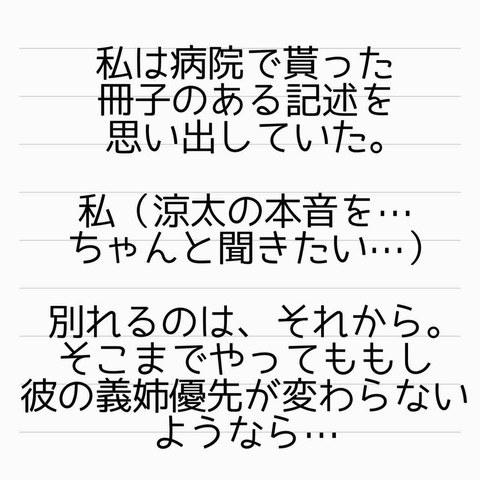 私は病院で貰った
冊子のある記述を
思い出していた。
私（涼太の本音を…
ちゃんと聞きたい…）
別れるのは、それから。
そこまでやってももし
彼の義姉優先が変わらない
ようなら…